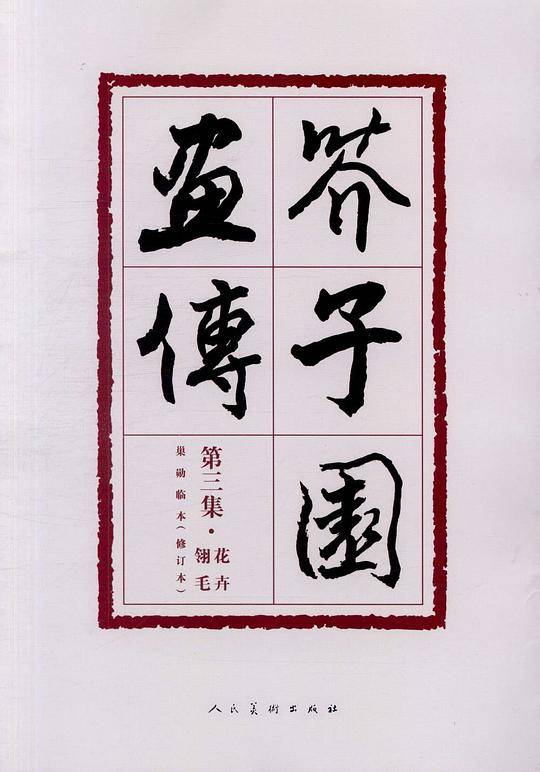 芥子園
畫傳
第三集·花卉
翎毛
巢勋临本(修订本)
人民美術出版社